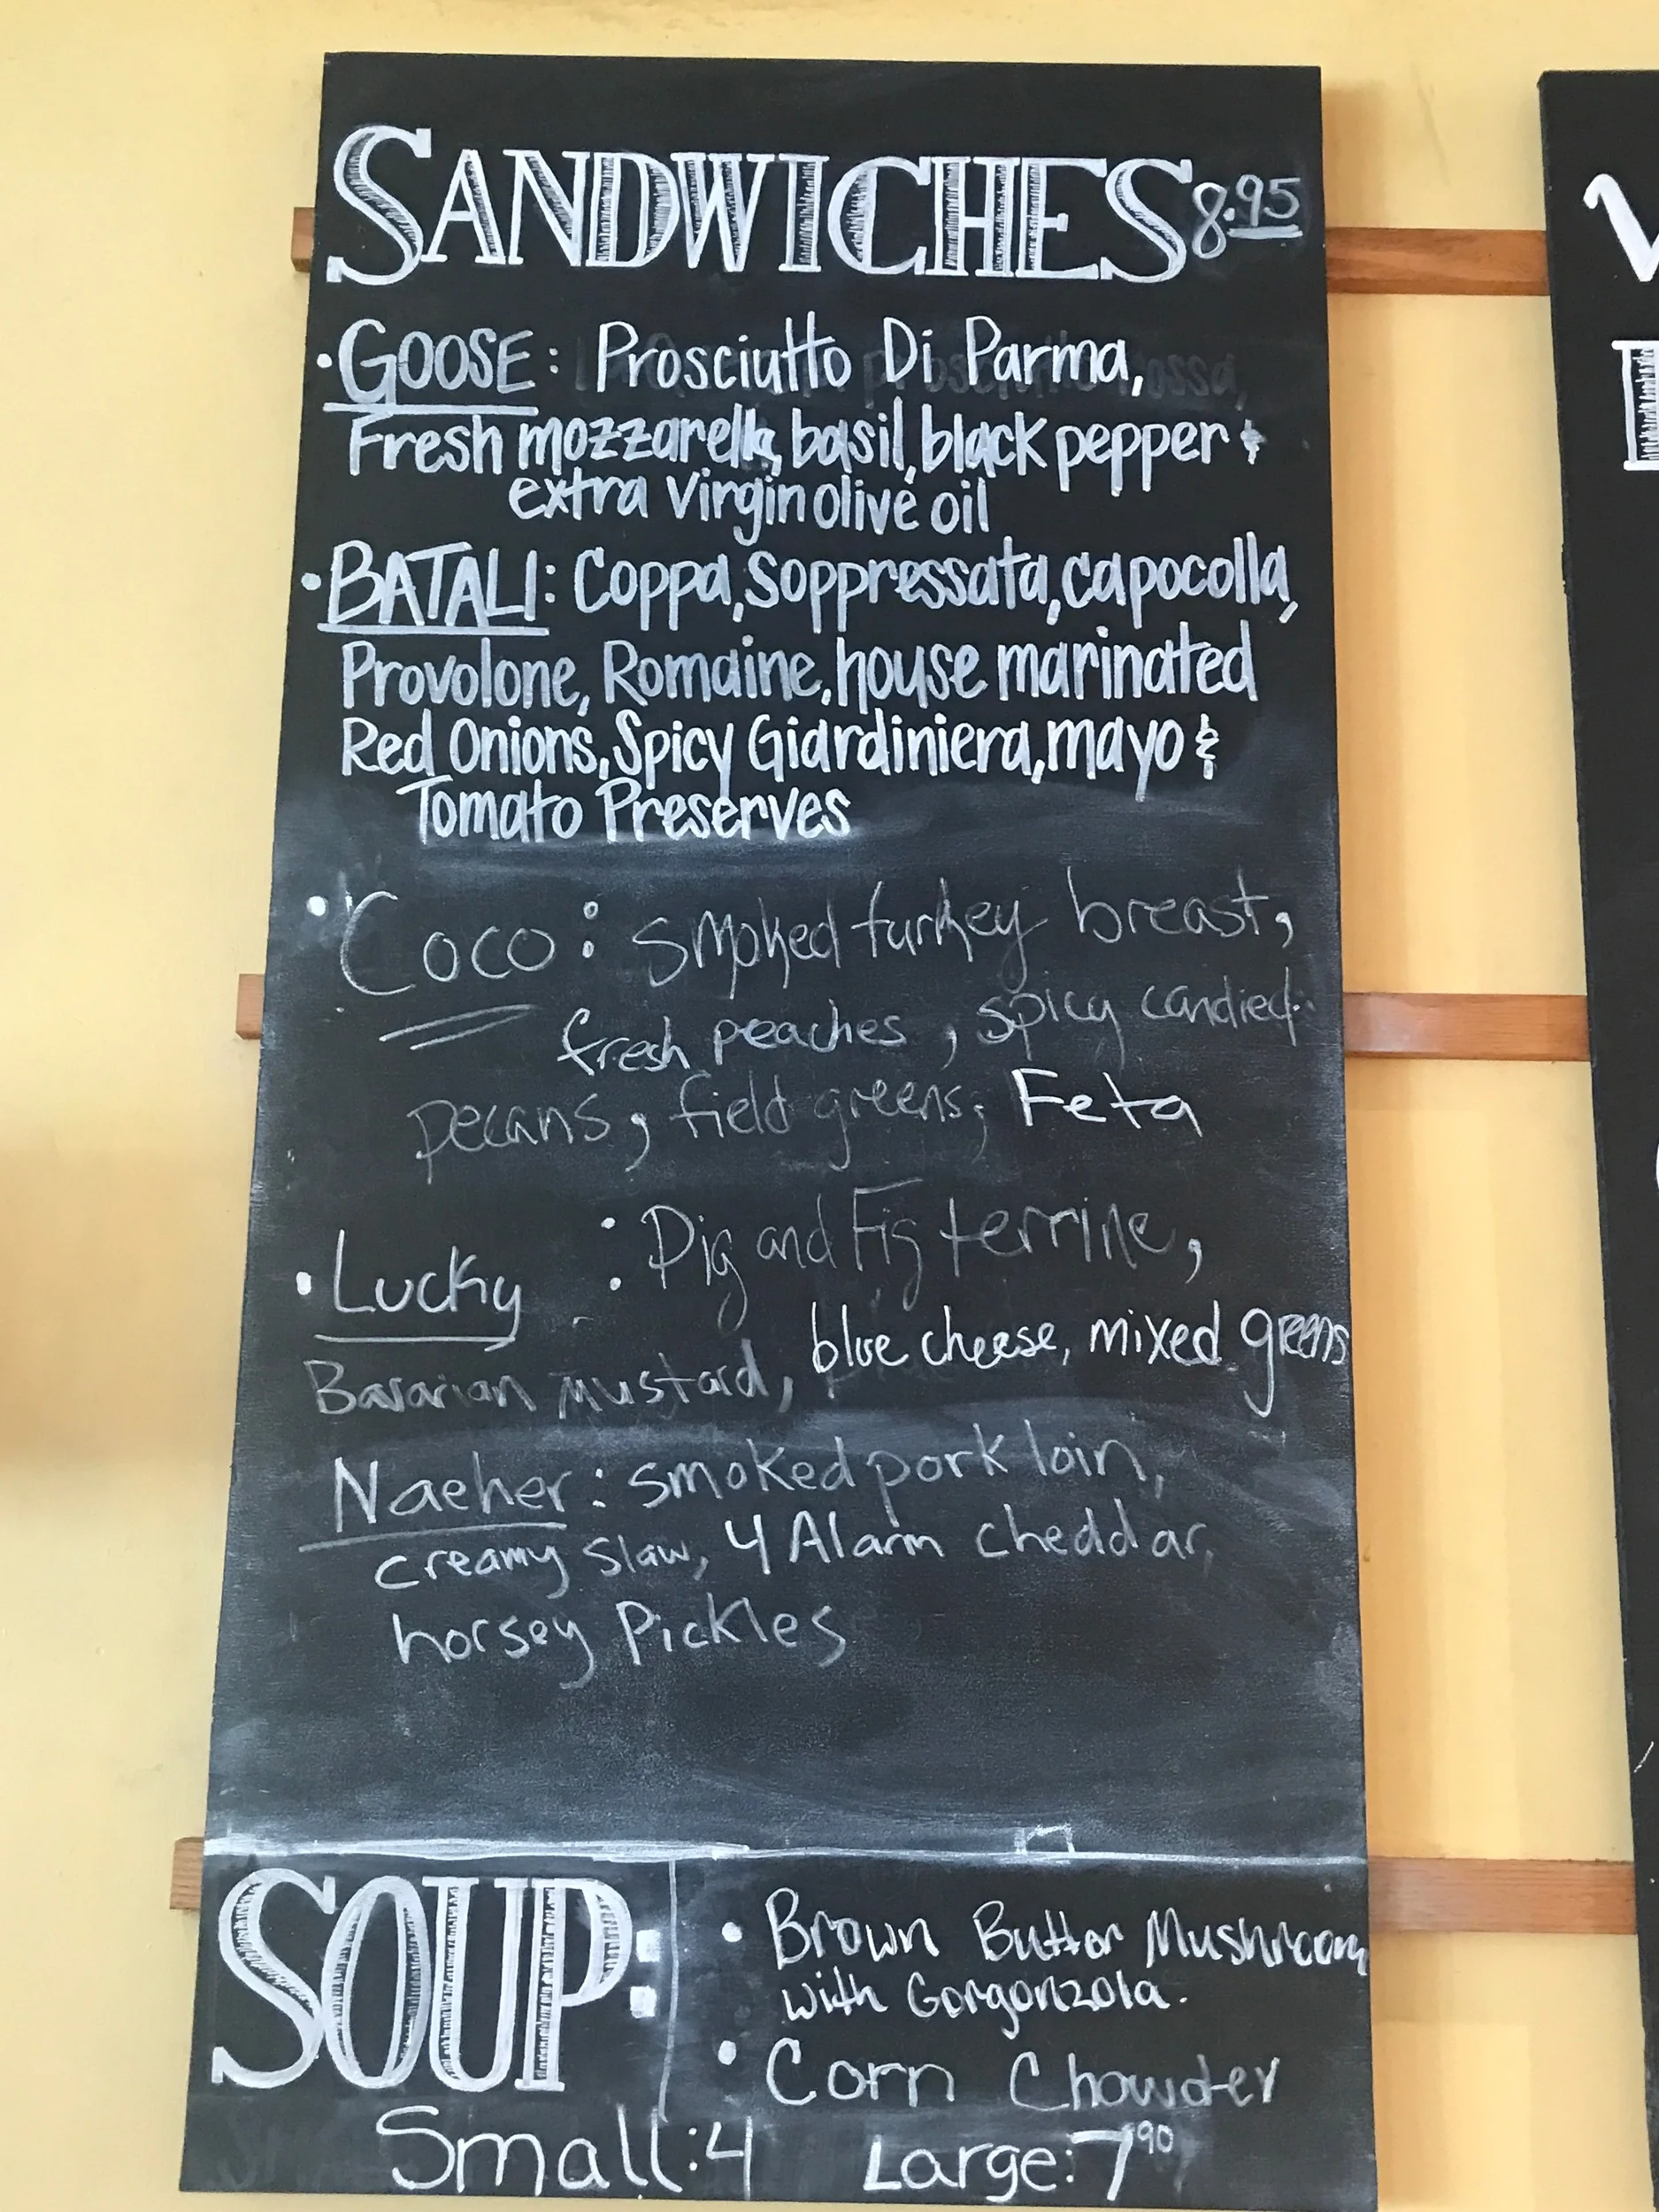 SANDWICHES 8.95
• GOOSE: Prosciutto Di Parma,
Fresh mozzarella, basil, black pepper &
extra Virgin olive oil
• BATALI: Coppa, Soppressata, capocolla,
Provolone, Romaine, house marinated
Red Onions, Spicy Giardiniera, mayo &
Tomato Preserves
• Coco: smoked turkey breast,
fresh peaches, spicy candied
pecans, field greens, Feta
• Lucky : Pig and Fig terrine,
Bavarian mustard, blue cheese, mixed greens
Naeher: smoked pork loin,
creamy slaw, 4 Alarm cheddar,
horsey Pickles
SOUP:
• Brown Butter Mushroom
with Gorgonzola.
• Corn Chowder
Small: 4 Large: 7 90